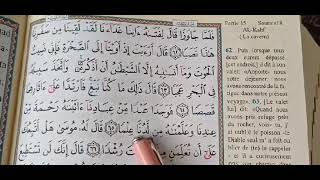 فَلَمَّا جَاوَزَا قَالَ لِفَتَىٰهُ ءَاتِنَا غَدَآءَنَا لَقَدْ لَقِينَا مِن سَفَرِنَا
هَٰذَا نَصَبًا ٦٢ قَالَ أَرَءَيْتَ إِذْ أَوَيْنَآ إِلَى ٱلصَّخْرَةِ فَإِنِّى نَسِيتُ
ٱلْحُوتَ وَمَآ أَنسَىٰنِيهُ إِلَّا ٱلشَّيْطَٰنُ أَنْ أَذْكُرَهُۥ وَٱتَّخَذَ سَبِيلَهُۥ
فِى ٱلْبَحْرِ عَجَبًا ٦٣ قَالَ ذَٰلِكَ مَا كُنَّا نَبْغِ فَٱرْتَدَّا عَلَىٰٓ ءَاثَارِهِمَا
قَصَصًا ٦٤ فَوَجَدَا عَبْدًا مِّنْ عِبَادِنَآ ءَاتَيْنَٰهُ رَحْمَةً مِّنْ
عِندِنَا وَعَلَّمْنَٰهُ مِن لَّدُنَّا عِلْمًا ٦٥ قَالَ لَهُۥ مُوسَىٰ هَلْ أَتَّبِعُكَ
عَلَىٰٓ أَن تُعَلِّمَنِ رُشْدًا ٦٦ قَالَ إِنَّكَ لَن
Partie 15 Sourate 18
Al-Kahf
(La caverne)
62. Puis, lorsque tous
deux eurent dépassé
[cet endroit,] il dit à son
valet: «Apporte-nous
notre déjeuner: nous
avons rencontré de la fatigue dans notre présent
voyage». 63. [Le valet
lui] dit: «Quand nous
avons pris refuge près
du rocher, vois-tu, j'ai
oublié le poisson - le
Diable seul m'a fait